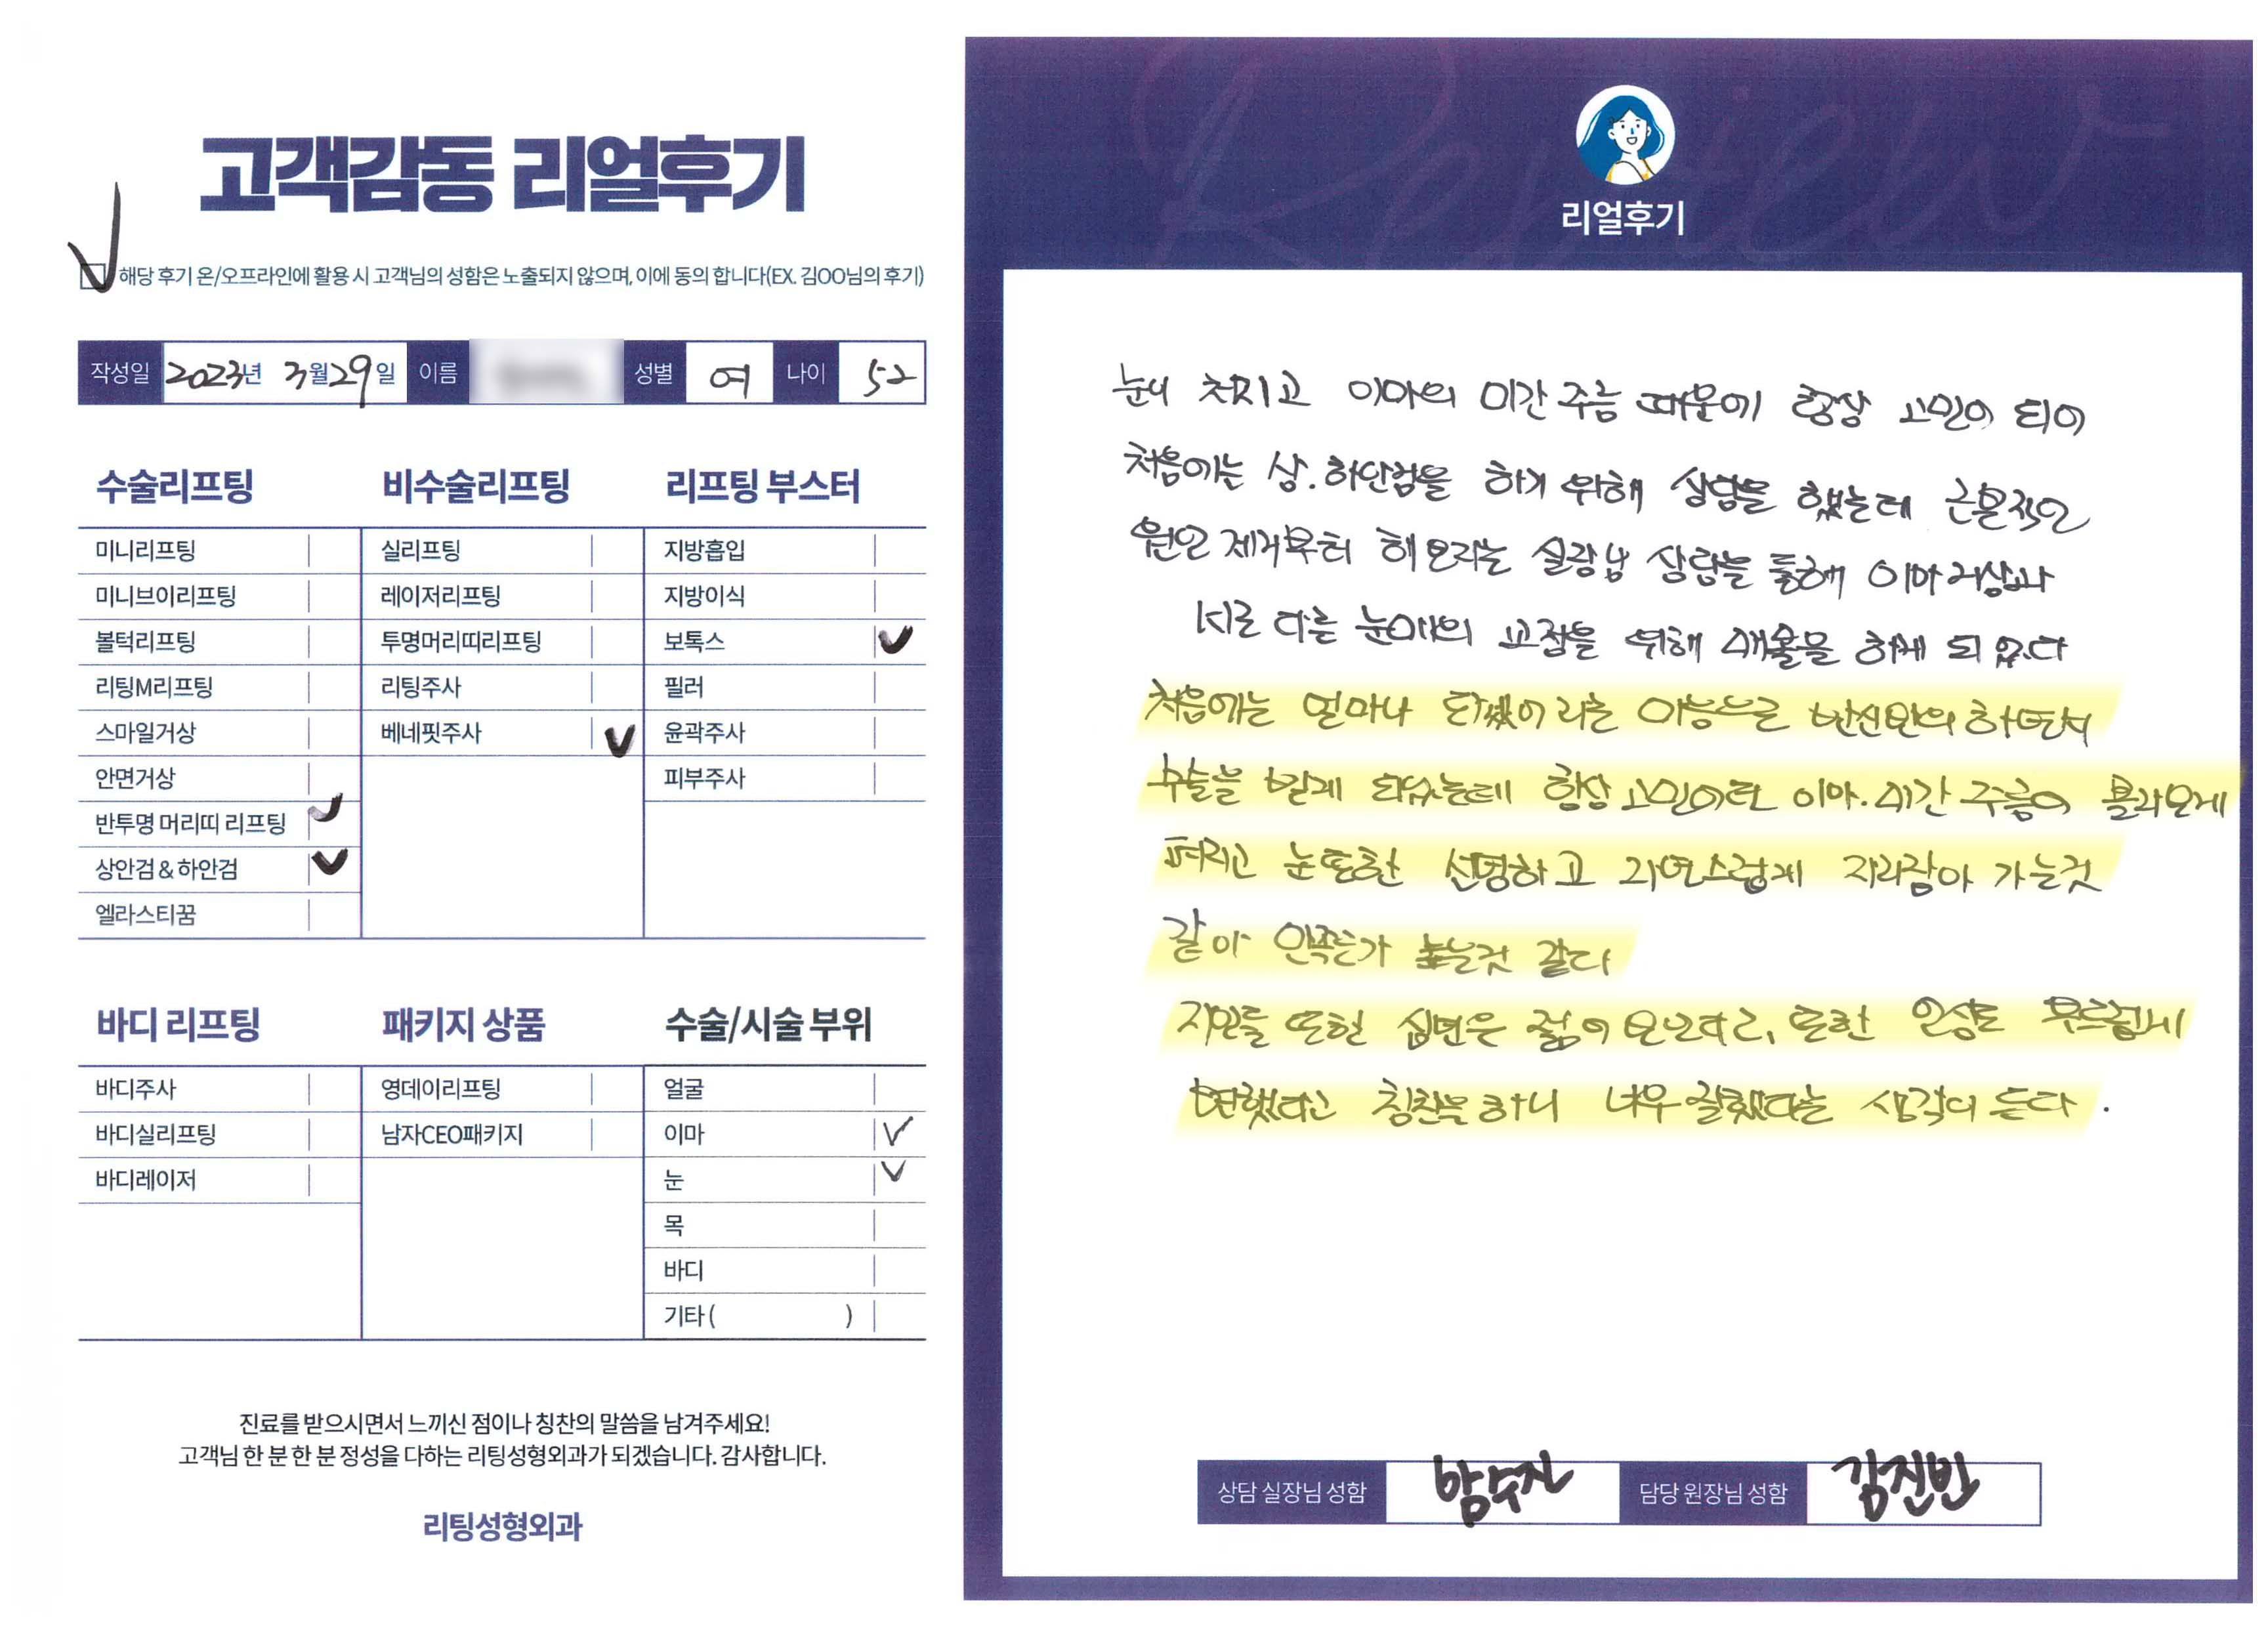 고객감동 리얼후기
해당 후기 온/오프라인에 활용 시 고객님의 성함은 노출되지 않으며, 이에 동의 합니다(EX. 김OO님의 후기)
작성일 2023년 3월 29일 이름 성별 여 나이 52
수술리프팅
미니리프팅
미니브이리프팅
볼턱리프팅
리팅M리프팅
스마일거상
안면거상
반투명 머리띠 리프팅
상안검 & 하안검
엘라스티꿈
비수술리프팅
실리프팅
레이저리프팅
투명머리띠리프팅
리팅주사
베네핏주사
리프팅 부스터
지방흡입
지방이식
보톡스
필러
윤곽주사
피부주사
바디 리프팅
바디주사
바디실리프팅
바디레이저
패키지 상품
영데이리프팅
남자CEO패키지
수술/시술 부위
얼굴
이마
눈
목
바디
기타 ( )
진료를 받으시면서 느끼신 점이나 칭찬의 말씀을 남겨주세요!
고객님 한 분 한 분 정성을 다하는 리팅성형외과가 되겠습니다. 감사합니다.
리팅성형외과
Review
리얼후기
눈이 처지고 이마의 미간 주름 때문에 항상 고민이 되어
처음에는 상.하안검을 하기 위해 상담을 했는데 근본적인
원인 제거부터 해 보라는 실장님 상담을 통해 이마거상과
서로 다른 눈매의 교정을 위해 수술을 하게 되었다
처음에는 얼마나 되겠어 라는 마음으로 반신반의 하면서
수술을 받게 되었는데 항상 고민이던 이마.미간 주름이 몰라보게
펴지고 눈또한 선명하고 자연스럽게 자리잡아 가는것
같아 만족도가 높은것 같다
지인들 또한 십년은 젊어 보인다고, 또한 인상도 부드럽게
변했다고 칭찬을 하니 너무 잘했다는 생각이 든다.
상담 실장님 성함 담당 원장님 성함 김진반